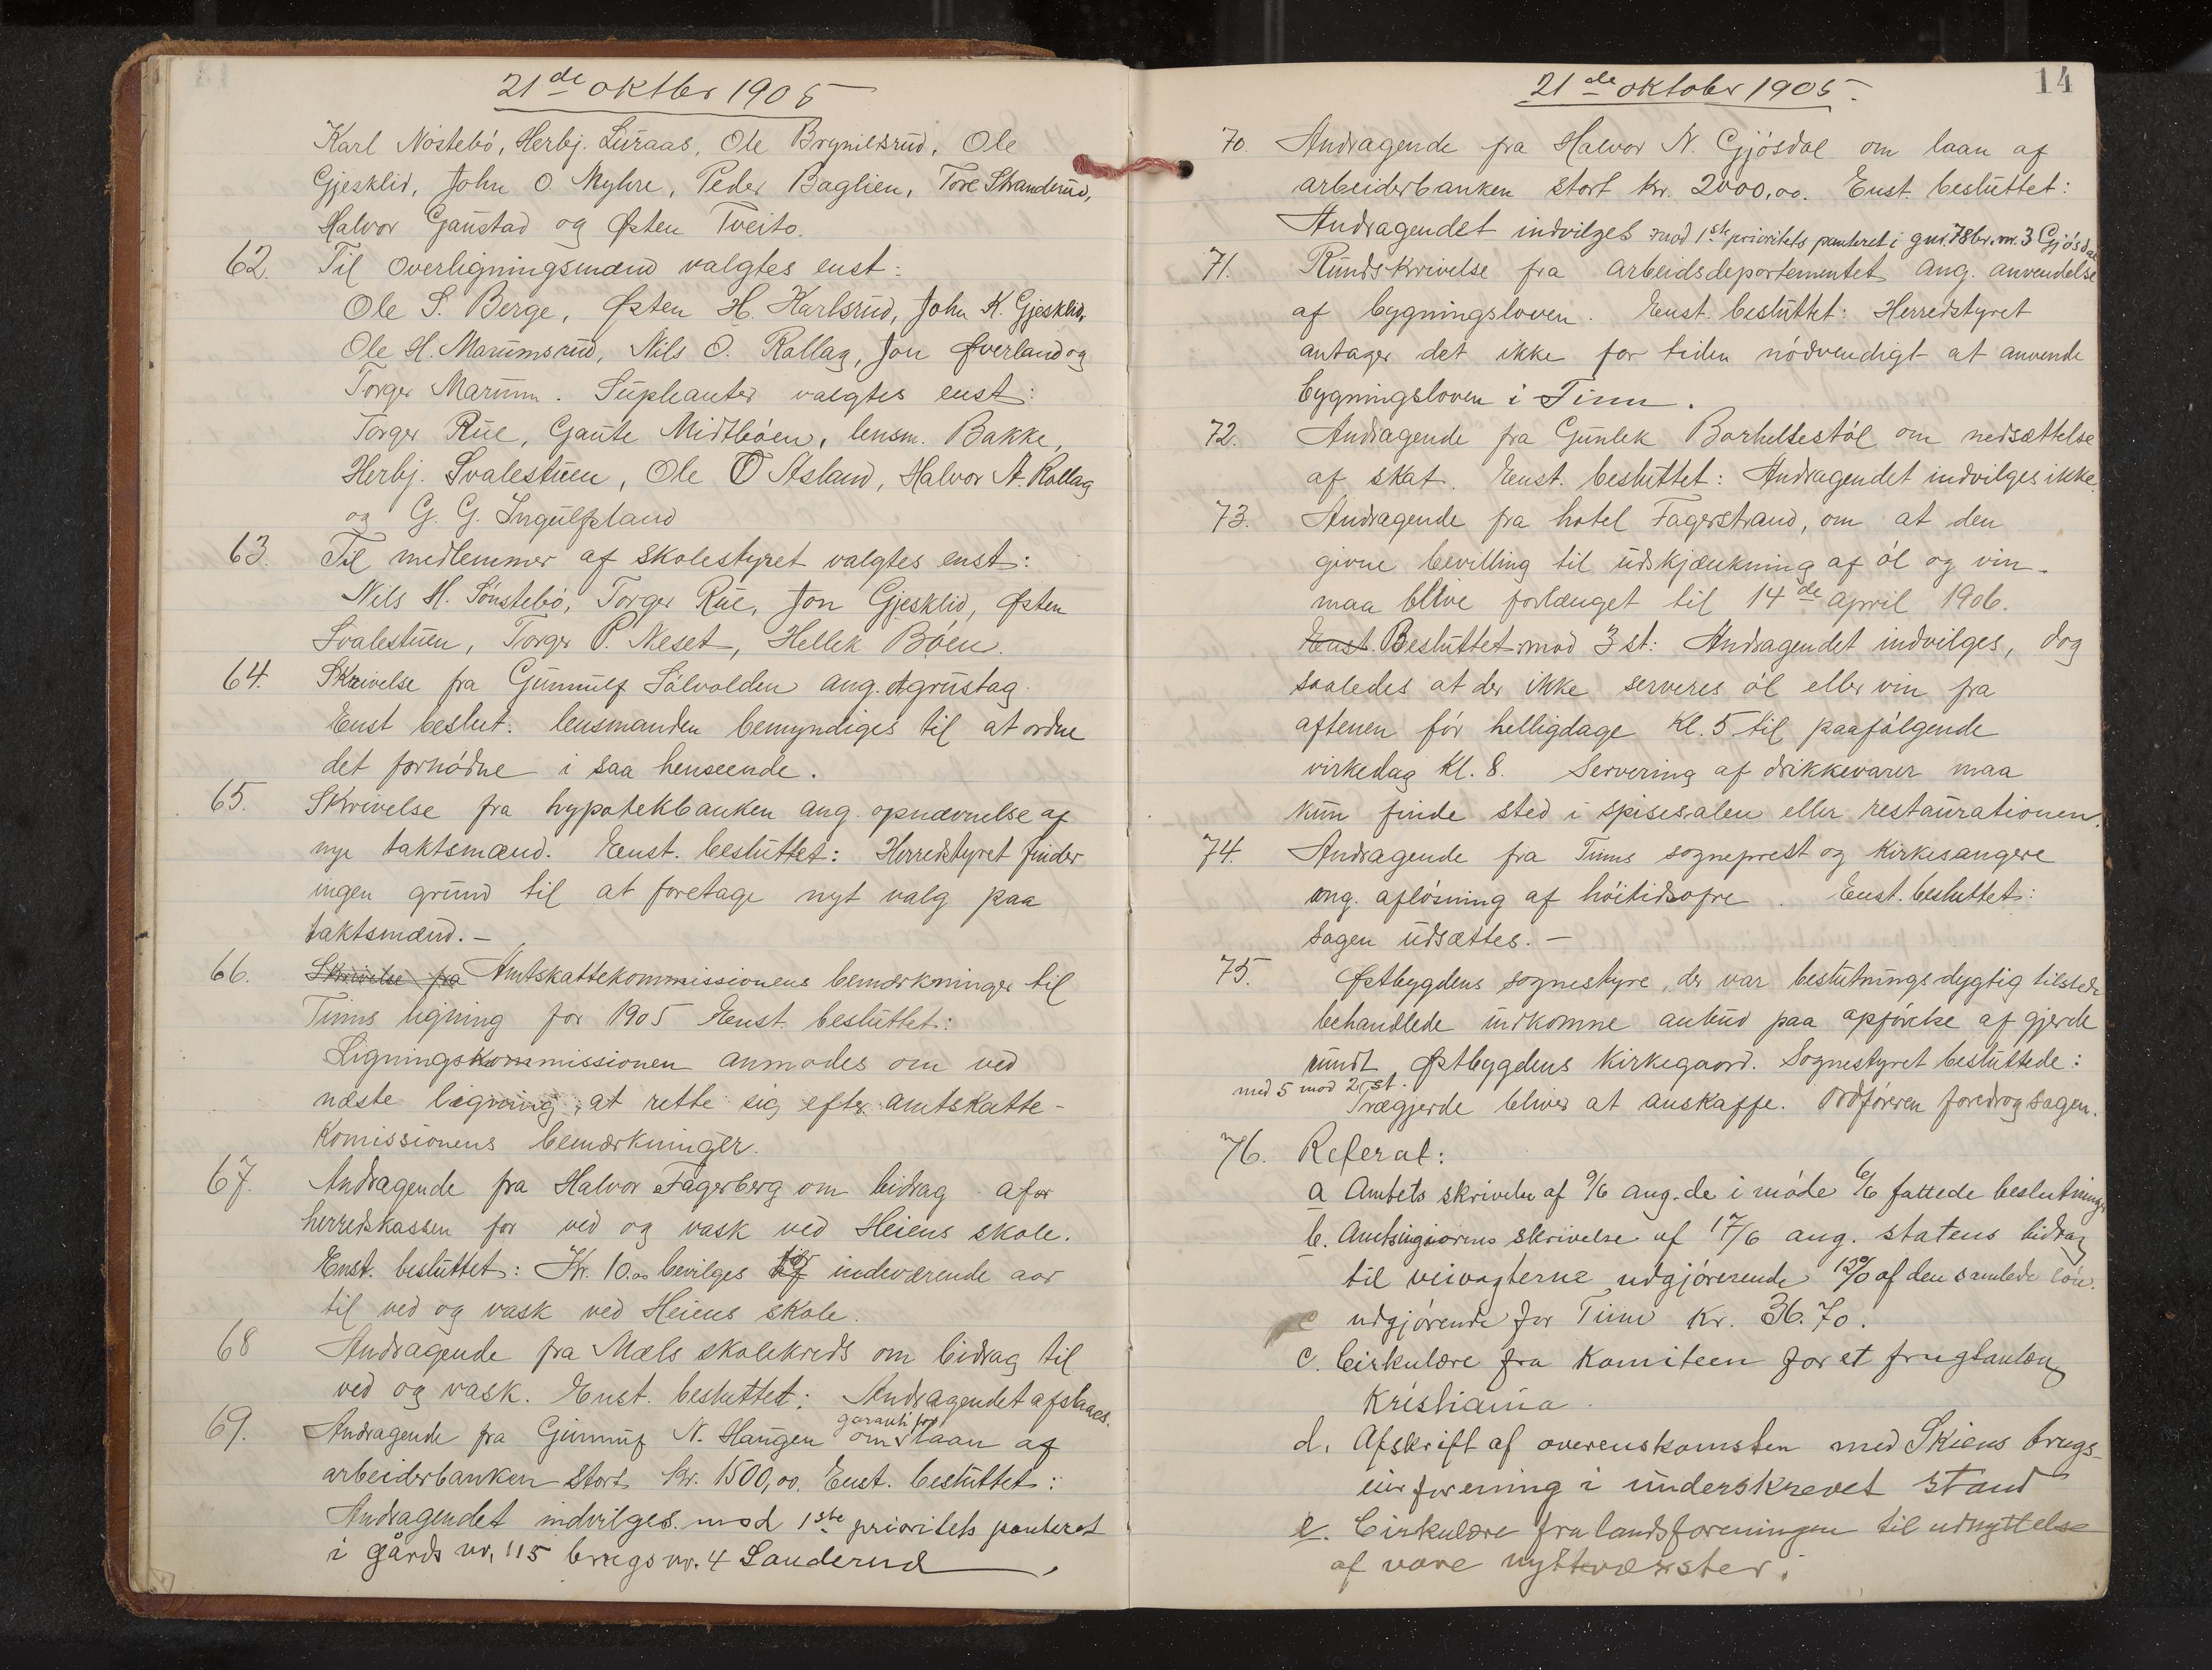 21de oktbr 1905
Karl Nöstebö, Herbj. Luraas, Ole Brynildsrud, Ole
Gjesklid, John O. Myhre, Peder Baglien, Tore Strandrud,
Halvor Gaustad og Østen Tveito.
62. Til overligningsmænd valgtes enst:
Ole S. Berge, Østen H. Harlsrud, John K. Gjesklid,
Ole H. Marumsrud, Nils O. Rollag, Jon Øverland og
Torger Marum. Supleanter valgtes enst:
Torger Rue, Gaute Midtböen, lensm. Bakke,
Herbj. Svalestuen, Ole O Asland, Halvor A. Rollag
og G. G. Ingulfsland
63. Til medlemmer af skolestyret valgtes enst:
Nils H. Sönstebö, Torger Rue, Jon Gjesklid, Østen
Svalestuen, Torger P. Neset, Hellek Böen.
64. Skrivelse fra Gunnulf Sölvolden ang. grustag.
Enst beslut: lensmanden bemyndiges til at ordne
det fornödne i saa henseende.
65. Skrivelse fra hypotekbanken ang. opnævnelse af
nye taktsmænd. Enst. besluttet: Herredstyret finder
ingen grund til at foretage nyt valg paa
taktsmænd. —
66. Skrivelse fra Amtskattekommissionens bemærkninger til
Tinns ligning for 1905 Enst. besluttet:
Ligningskommissionen anmodes om ved
næste ligning, at rette sig efter amtskatte-
komissionens bemærkninger.
67. Andragende fra Halvor Fagerberg om bidrag af
herredskassen for ved og vask ved Heiens skole.
Enst. besluttet: Kr. 10.00 bevilges for indeværende aar
til ved og vask ved Heiens skole.
68 Andragende fra Mæls skolekreds om bidrag til
ved og vask. Enst. besluttet: Andragendet afslaaes.
garanti for
69. Andragende fra Gunnulf N. Haugen om laan af
arbeiderbanken stort kr. 1500,00. Enst. besluttet:
Andragendet indvilges mod 1ste prioritets panteret
i gårds nr. 115 brugs nr. 4 Sanderud
14
21de oktober 1905.
70. Andragende fra Halvor N. Gjösdal om laan af
arbeiderbanken stort kr. 2000,00. Enst. besluttet:
Andragendet indvilges mod 1ste prioritets panteret i gnr. 78 br. nr. 3 Gjösdal
71. Rundskrivelse fra arbeidsdepartementet ang. anvendelse
af bygningsloven. Enst. besluttet: Herredstyret
antager det ikke for tiden nödvendigt at anvende
bygningsloven i Tinn.
72. Andragende fra Gunlek Borheltestöl om nedsættelse
af skat. Enst. besluttet: Andragendet indvilges ikke.
73. Andragende fra hotel Fagerstrand, om at den
givne bevilling til udskjænkning af öl og vin
maa blive forlænget til 14de april 1906.
Enst. Besluttet mod 3 st: Andragendet indvilges, dog
saaledes at der ikke serveres öl eller vin fra
aftenen för helligdage Kl. 5 til paafölgende
virkedag Kl. 8. Servering af drikkevarer maa
kun finde sted i spisesalen eller restaurationen.
74. Andragende fra Tinns sogneprest og kirkesangere
ang. aflösning af höitidsofre. Enst. besluttet:
Sagen udsættes. —
75. Østbygdens sognestyre, der var beslutningsdygtig tilstede
behandlede indkomne anbud paa opförelse af gjerde
rundt Østbygdens kirkegaard. Sognestyret besluttede:
med 5 mod 2 st.
Trægjerde bliver at anskaffe. Ordföreren foredrog sagen.
76. Referat:
a Amtets skrivelse af 9/6 ang. de i möde 6/6 fattede beslutninger
b. Amtsingiörens skrivelse af 17/6 ang. statens bidrag
til veivagterne udgjörerende 15% af den samlede lön.
udgjörende for Tinn Kr. 36.70.
c. Cirkulære fra Komiteen for et frugtanlæg
Kristiania.
d. Afskrift af overenskomsten med Skiens brugs-
eierforening i underskrevet stand
e. Cirkulære fra landsforeningen til udnyttelse
af vore nyttevækster.